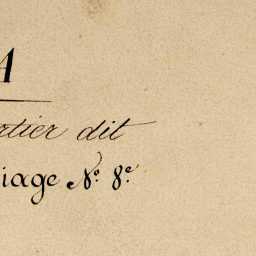 A
rtier dit
iage N.º 8.e